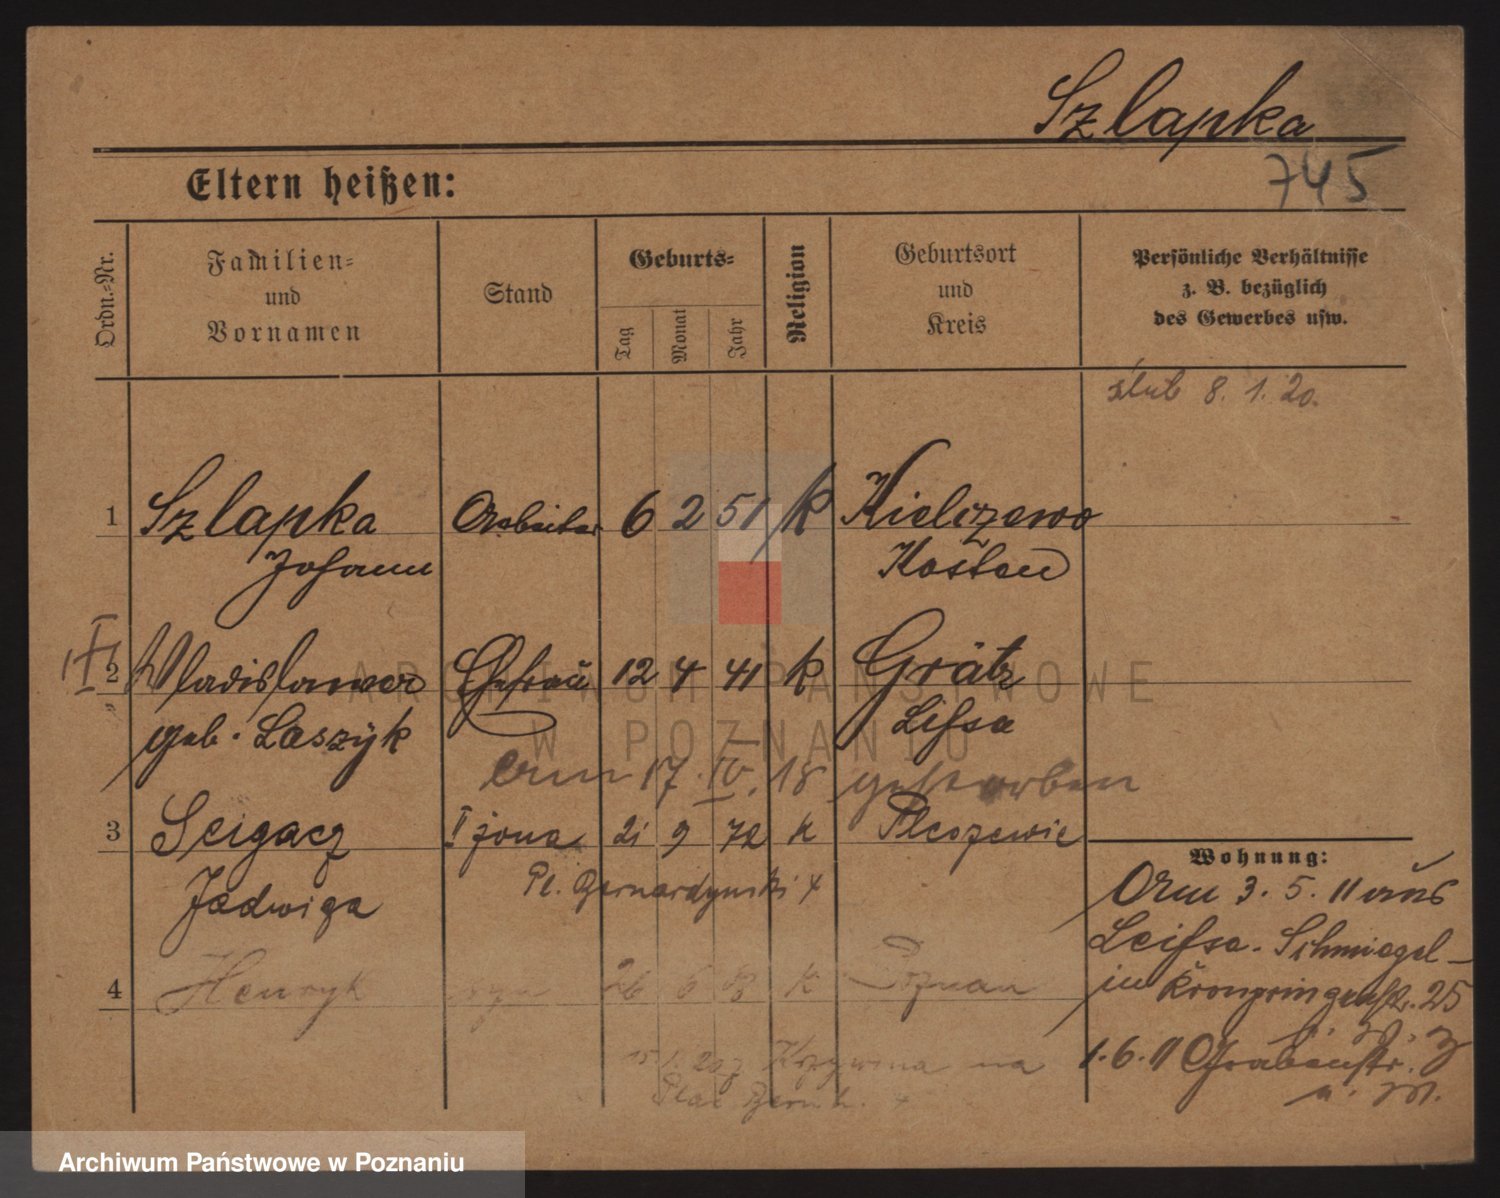 Szlapka
745
Eltern heißen:
Ordn.-Nr.
Familien-
und
Vornamen
Stand
Geburts-
Tag
Monat
Jahr
Religion
Geburtsort
und
Kreis
Persönliche Verhältnisse
z. B. bezüglich
des Gewerbes usw.
ślub 8. 1. 20.
1 Szlapka Arbeiter 6 2 51 k Kielczewo
Johann Kosten
I
2 Wladislawa Ehefrau 12 4 41 k Grätz
geb. Laszyk Lissa
am 17. IV. 18 gestorben
3 Scigacz żona 21 9 72 k Pleszewie
Pl. Bernardynski 4
Jadwiga
4 Henryk syn 26 6 k Poznan
15/1. 20 z na
Plac Bernh. 4
Wohnung:
Am 3. 5. 11 aus
Leissa. Schmiegel-
in Kronprinzenstr. 25
1. 6. 11 Grabenstr. 3
ARCHIWUM PAŃSTWOWE
W POZNANIU
Archiwum Państwowe w Poznaniu